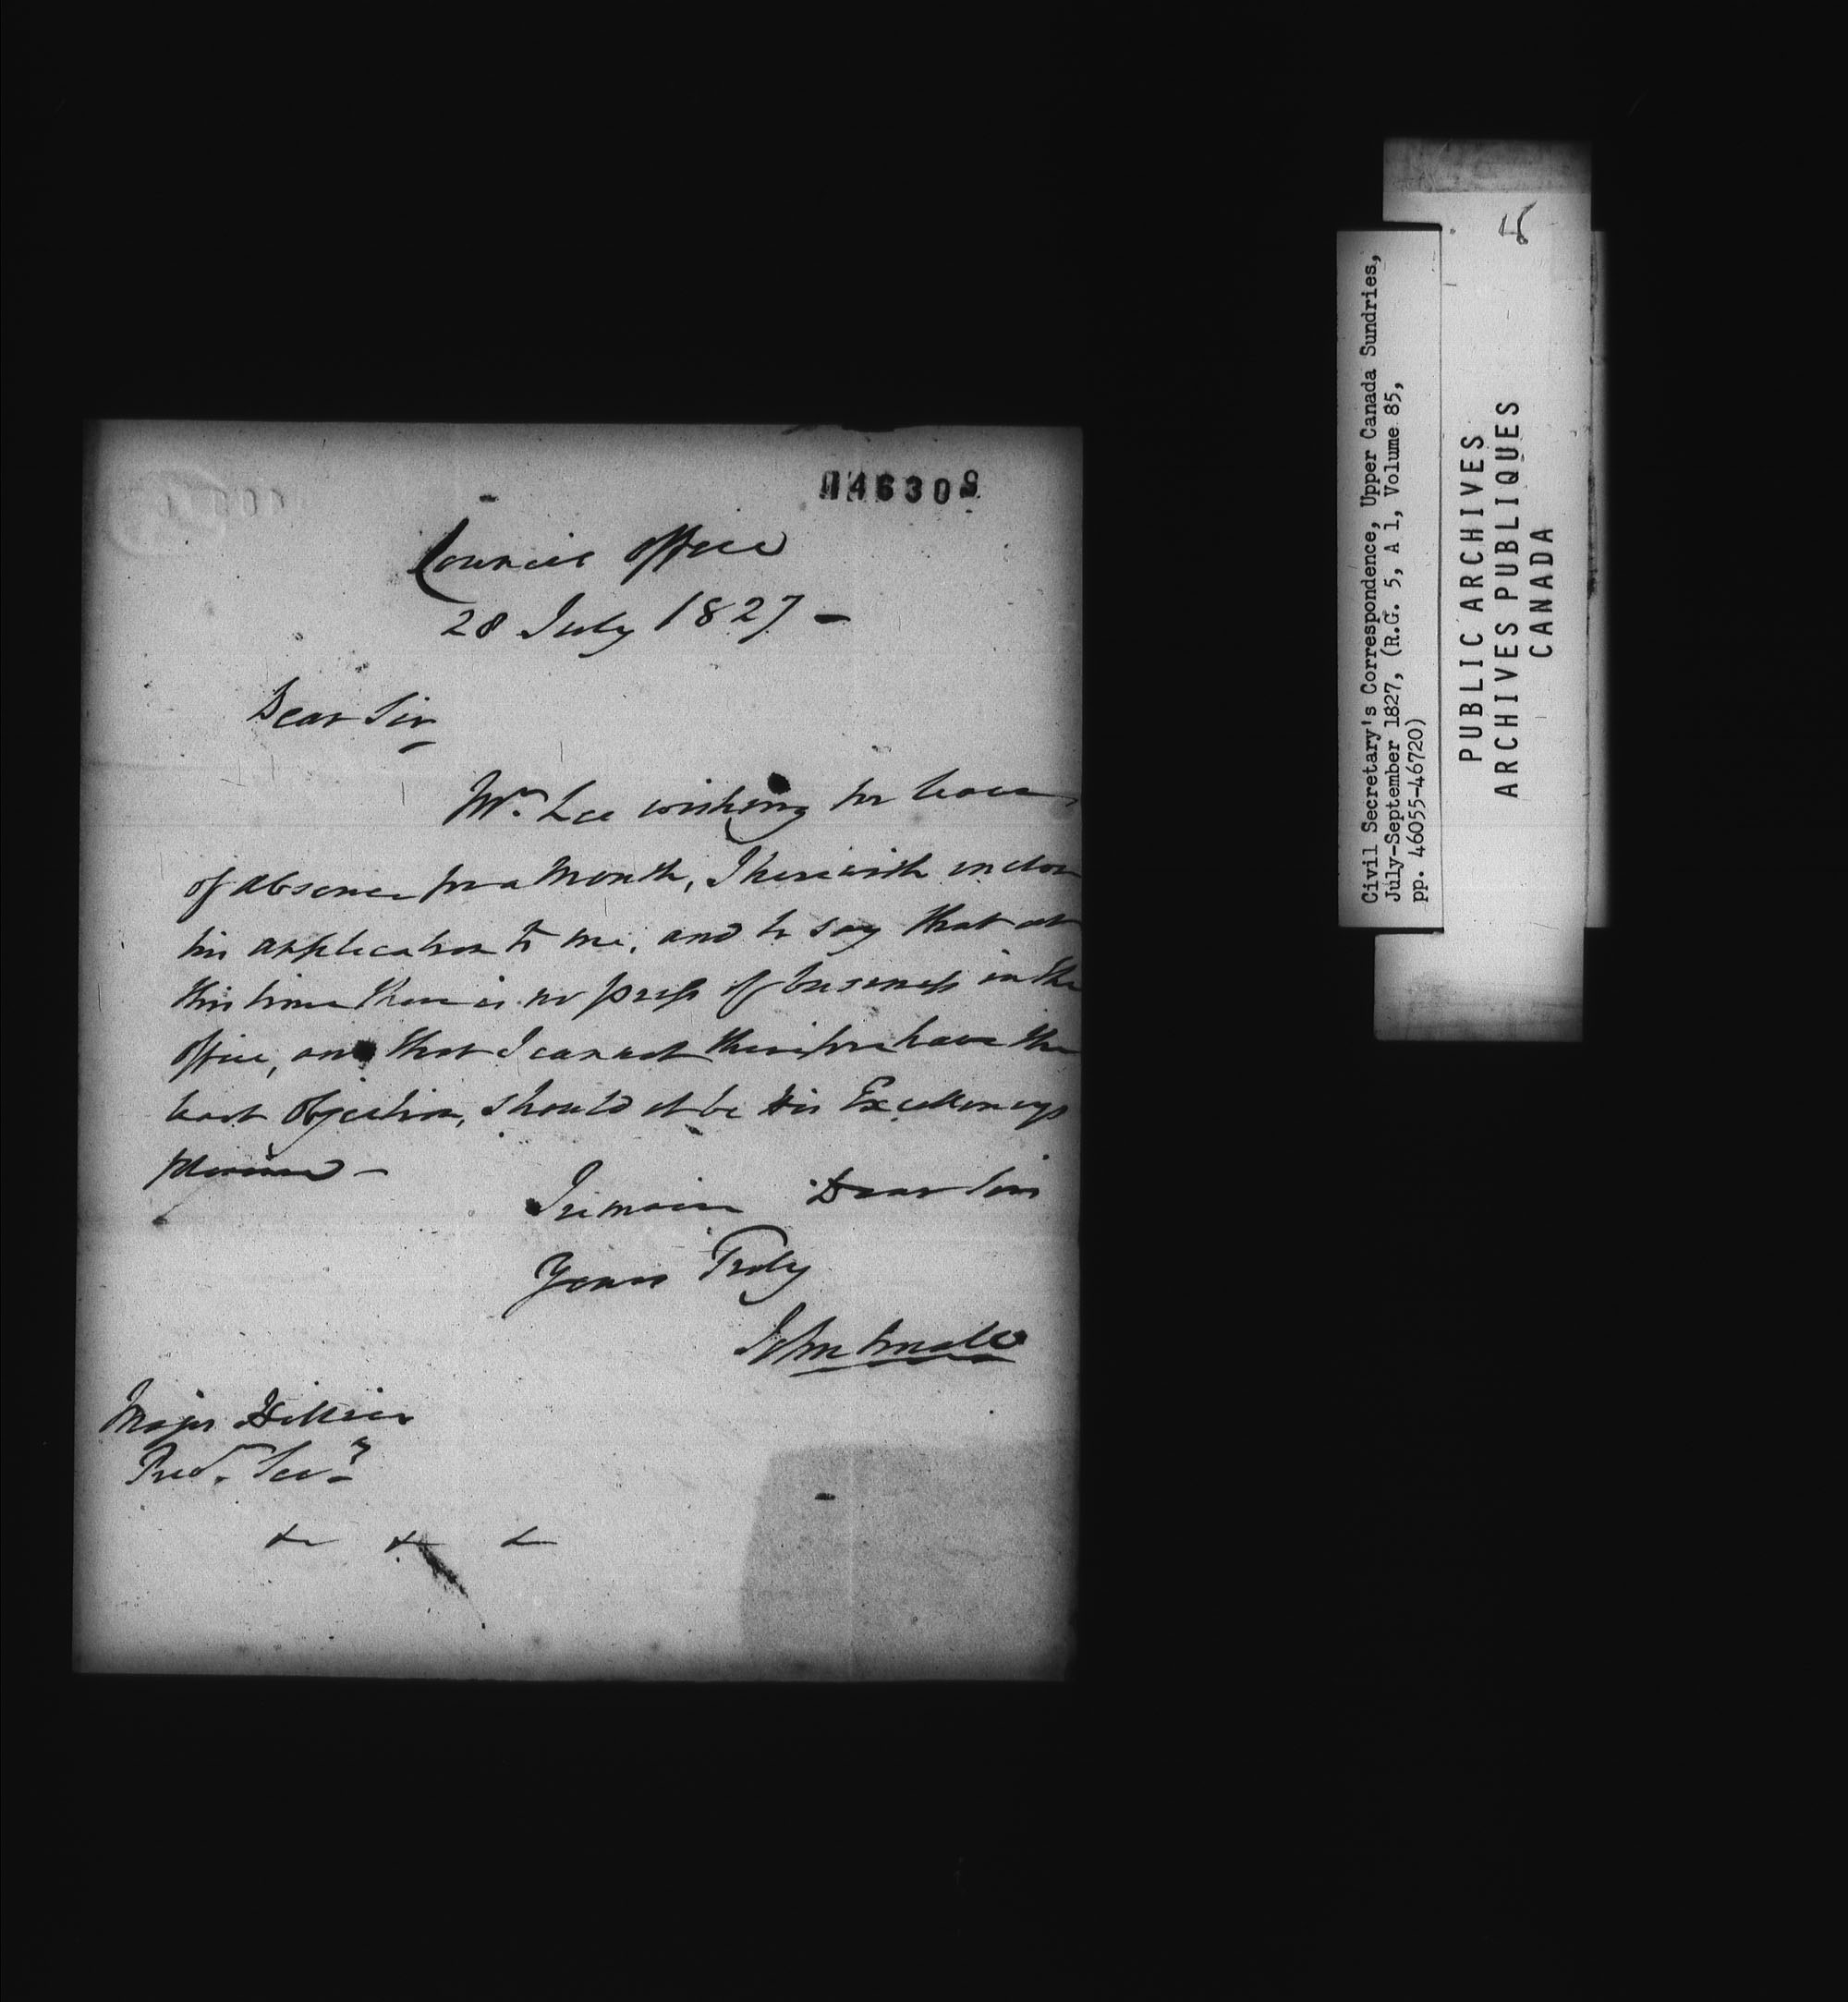 046308
Council Office
28 July 1827 -
Dear Sir,
Mr. Lee wishing for leave
of absence for a Month, I herewith inclose
his application to me, and to say that at
this time there is no press of business in the
Office, and that I cannot therefore have the
least Objection, should it be His Excellencys
pleasure -
I remain Dear Sir
Yours Truly
John Small
Major Hillier
Secy
& & &
Civil Secretary's Correspondence, Upper Canada Sundries,
July-September 1827, (R.G. 5, A 1, Volume 85,
pp. 46055-46720)
PUBLIC ARCHIVES
ARCHIVES PUBLIQUES
CANADA